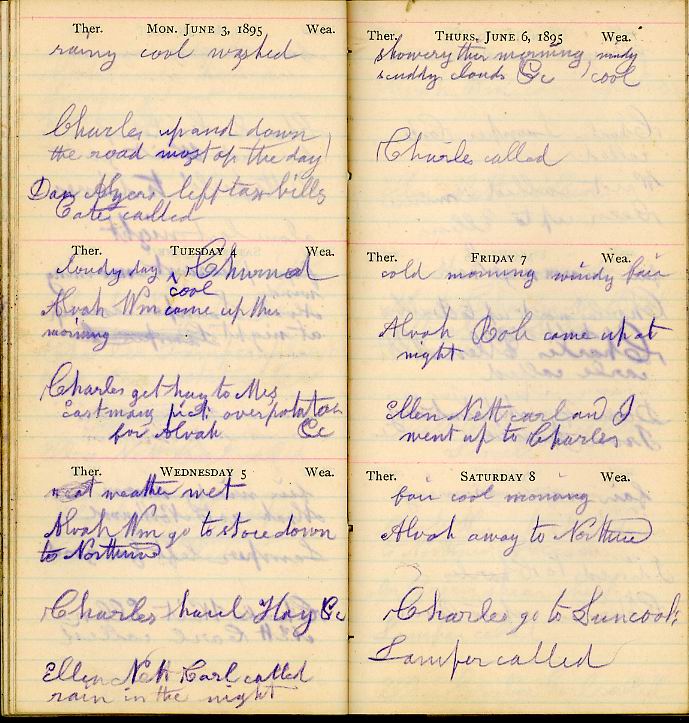 Ther. MON. JUNE 3, 1895 Wea.
rainy cool washed
Charles up and down
the road most of the day
Dan Myers left tax bills
Cate called
Ther. TUESDAY 4 Wea.
cloudy day cool Churned
Alvah Wm come up this
morning
Charles get hay to Mrs
Eastman pick over potatoes
for Alvah &c
Ther. WEDNESDAY 5 Wea.
weather wet
Alvah Wm go to store down
to
Charles haul Hay &c
Ellen Nett Carl called
rain in the night
Ther. THURS. JUNE 6, 1895 Wea.
showery this morning windy
scuddy clouds &c cool
Charles called
Ther. FRIDAY 7 Wea.
cold morning windy fair
Alvah Rob come up at
night
Ellen Nett Carl and I
went up to Charles
Ther. SATURDAY 8 Wea.
fair cool morning
Alvah away to
Charles go to Suncook
called